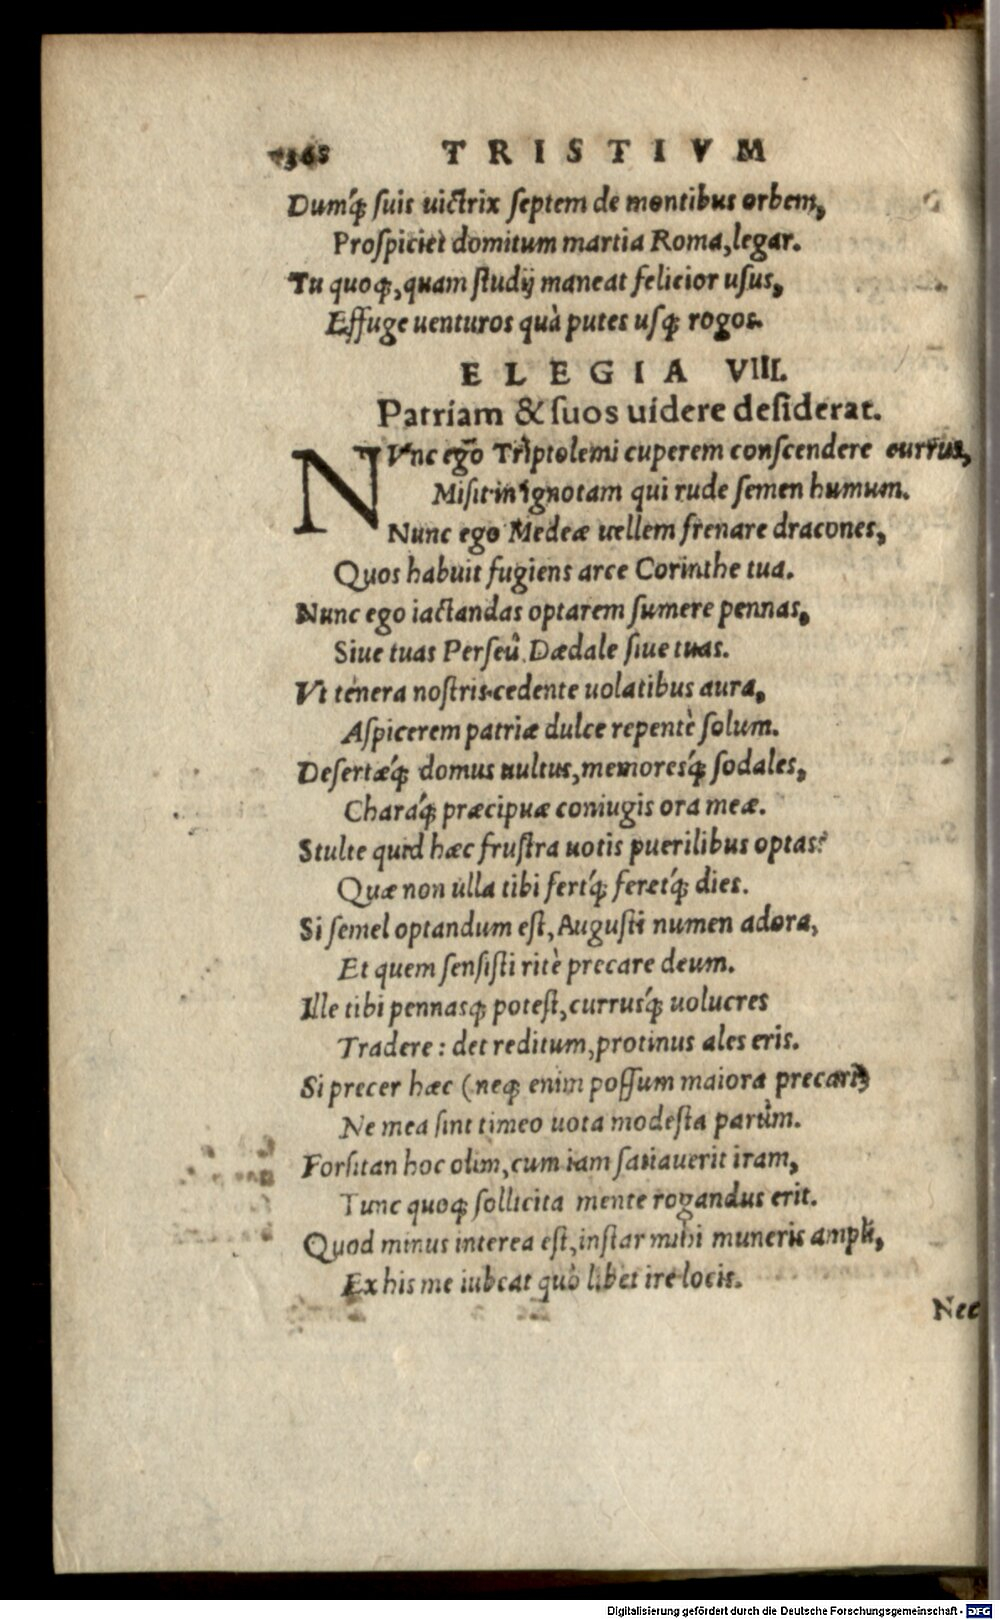 368 TRISTIVM
Dumq́ꝫ suis uictrix septem de montibus orbem,
Prospiciet domitum martia Roma, legar.
Tu quoqꝫ, quam studij maneat felicior usus,
Effuge uenturos quà putes usqꝫ rogos.
ELEGIA VIII.
Patriam & suos uidere desiderat.
NVnc ego Triptolemi cuperem conscendere currus,
Misit in ignotam qui rude semen humum.
Nunc ego Medeæ uellem frenare dracones,
Quos habuit fugiens arce Corinthe tua.
Nunc ego iactandas optarem sumere pennas,
Siue tuas Perseû, Dædale siue tuas.
Vt tenera nostris cedente uolatibus aura,
Aspicerem patriæ dulce repentè solum.
Desertæq́ꝫ domus uultus, memoresq́ꝫ sodales,
Charaq́ꝫ præcipuæ coniugis ora meæ.
Stulte quid hæc frustra uotis puerilibus optas?
Quæ non ulla tibi fertq́ꝫ feretq́ꝫ dies.
Si semel optandum est, Augusti numen adora,
Et quem sensisti ritè precare deum.
Ille tibi pennasqꝫ potest, currusq́ꝫ uolucres
Tradere: det reditum, protinus ales eris.
Si precer hæc (neqꝫ enim possum maiora precari)
Ne mea sint timeo uota modesta parùm.
Forsitan hoc olim, cum iam satiauerit iram,
Tunc quoqꝫ sollicita mente rogandus erit.
Quod minus interea est, instar mihi muneris ampli,
Ex his me iubeat quò libet ire locis.
Nec
Digitalisierung gefördert durch die Deutsche Forschungsgemeinschaft - DFG